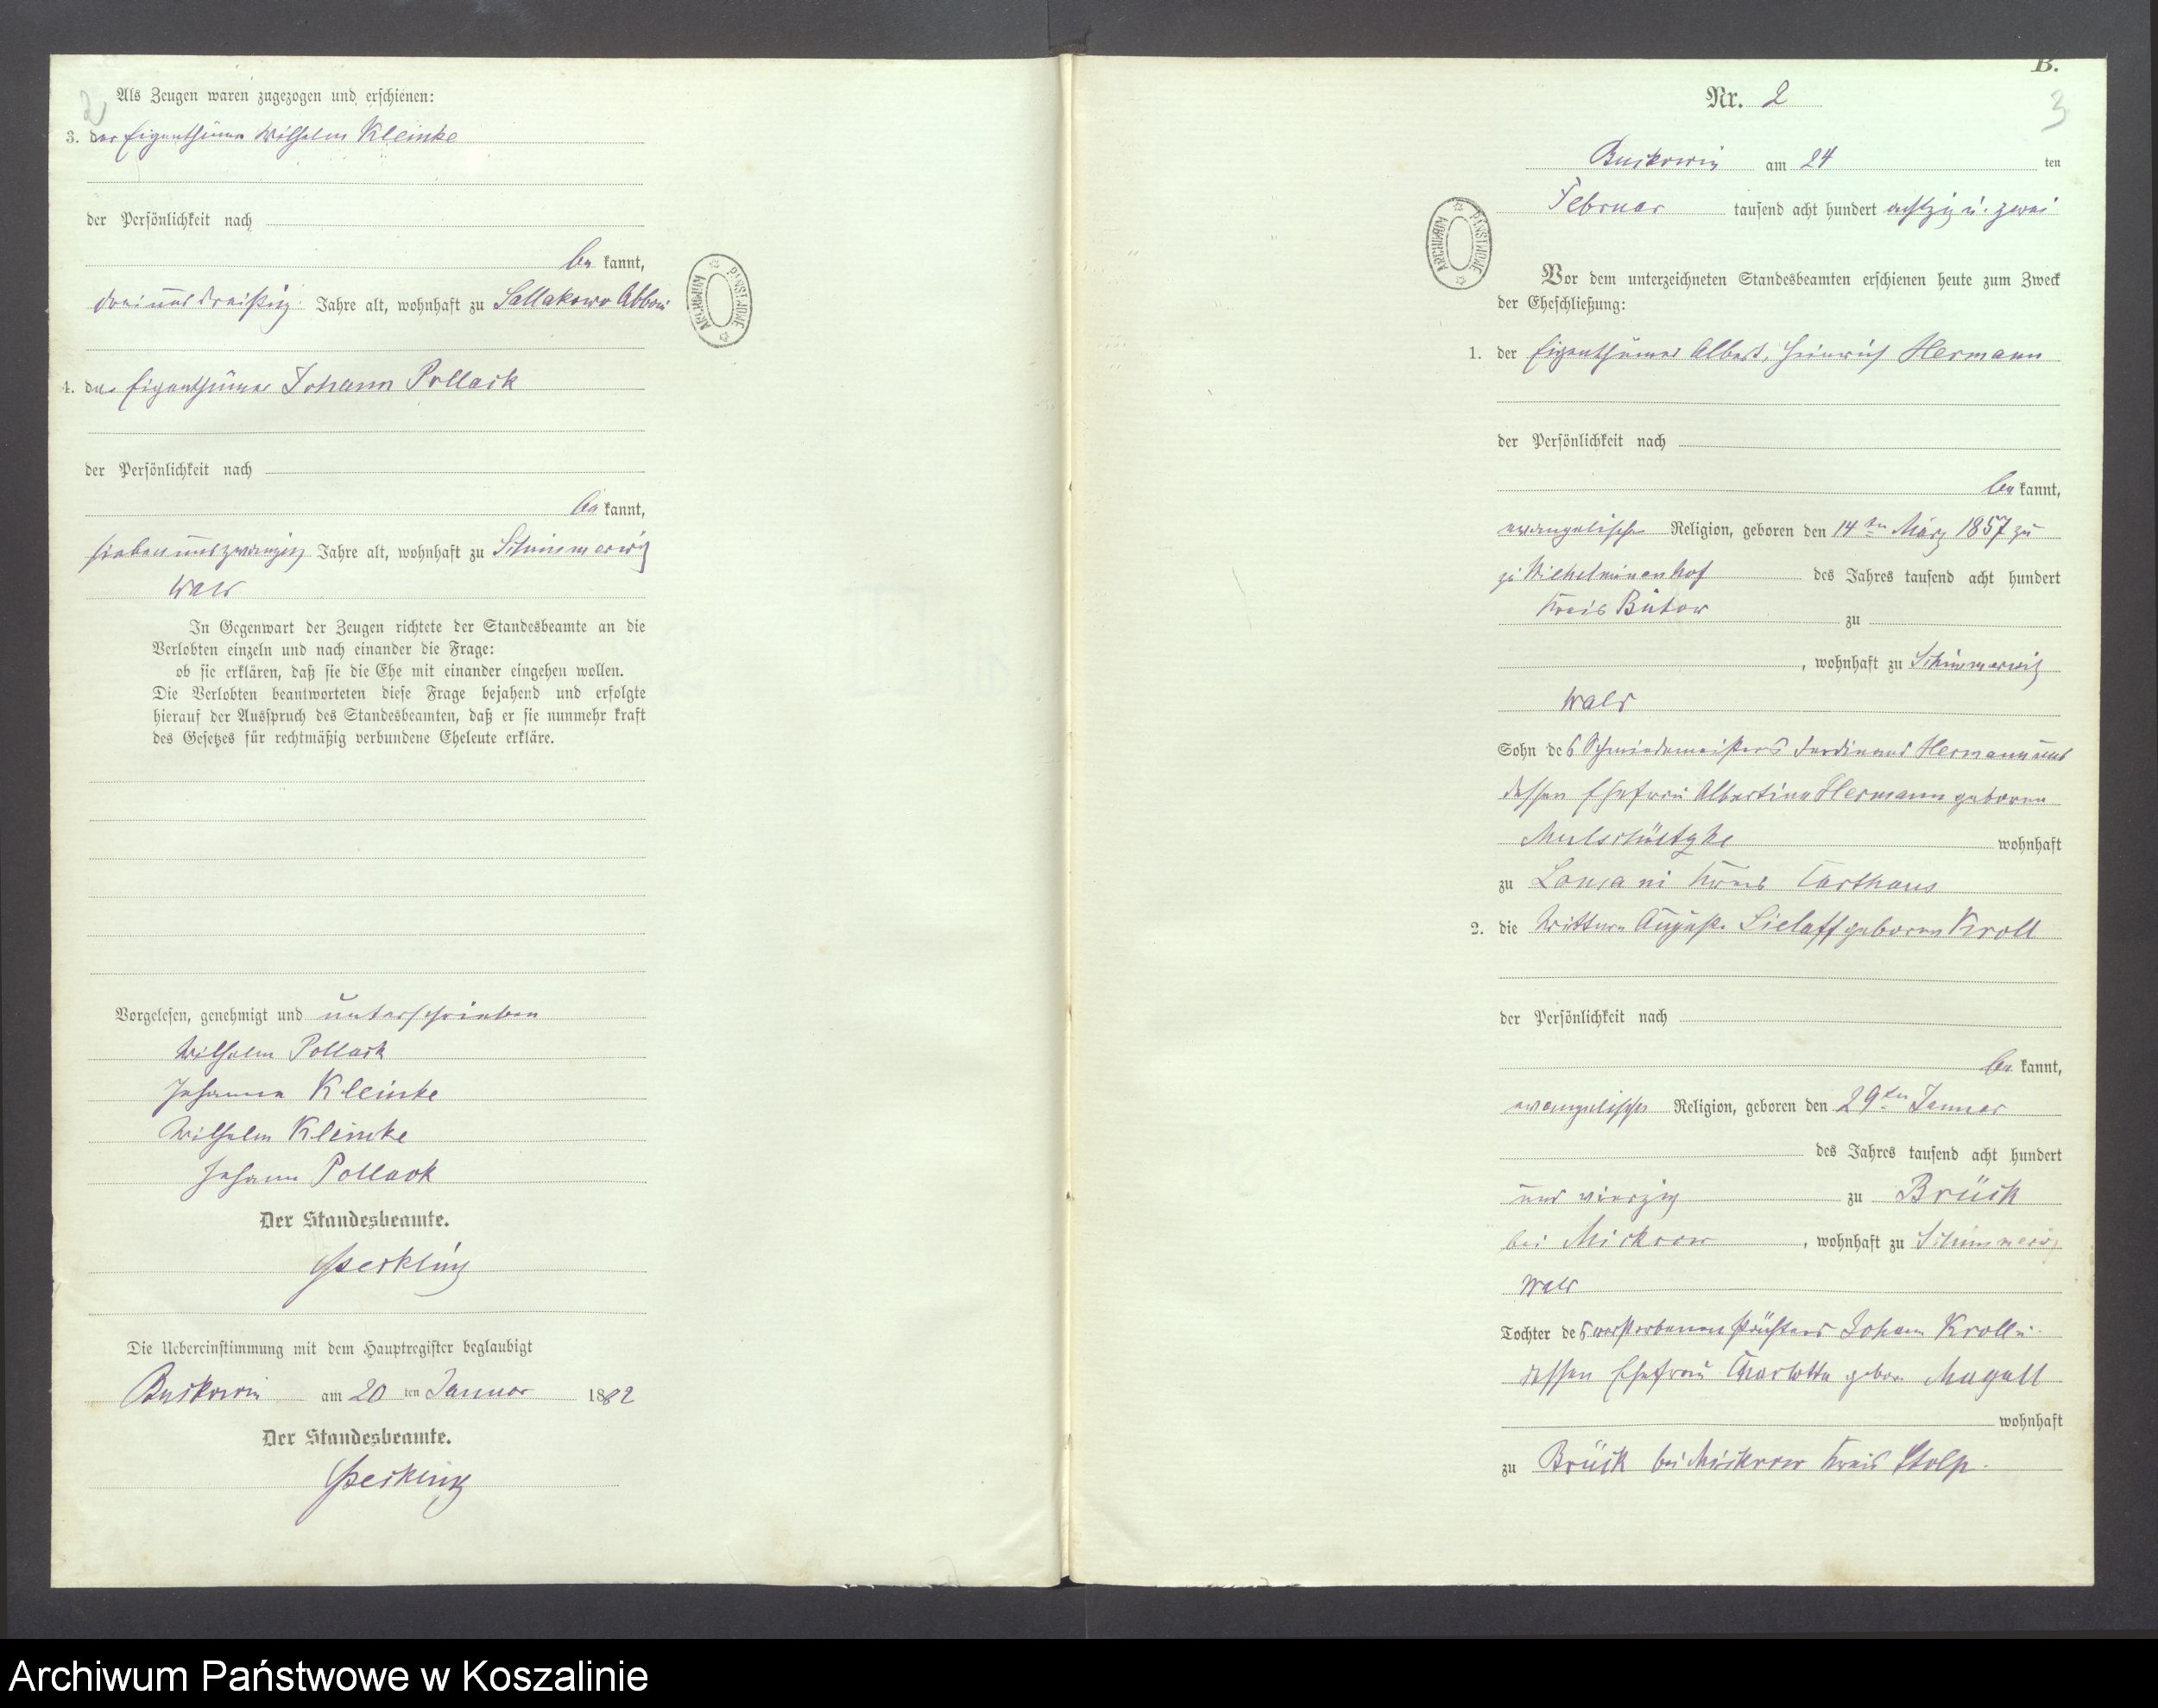 2
Als Zeugen waren zugezogen und erschienen:
3. der Eigenthümer Wilhelm Kleinke
der Persönlichkeit nach
be kannt,
dreiunddreißig Jahre alt, wohnhaft zu Sallakowo Abbau
4. der Eigenthümer Johann Pollack
der Persönlichkeit nach
be kannt,
siebenundzwanzig Jahre alt, wohnhaft zu Schimmerwitz
Wald
In Gegenwart der Zeugen richtete der Standesbeamte an die
Verlobten einzeln und nach einander die Frage:
ob sie erklären, daß sie die Ehe mit einander eingehen wollen.
Die Verlobten beantworteten diese Frage bejahend und erfolgte
hierauf der Ausspruch des Standesbeamten, daß er sie nunmehr kraft
des Gesetzes für rechtmäßig verbundene Eheleute erkläre.
Vorgelesen, genehmigt und unterschrieben
Wilhelm Pollack
Johanna Kleinke
Wilhelm Kleinke
Johann Pollack
Der Standesbeamte.
Die Uebereinstimmung mit dem Hauptregister beglaubigt
Buskowin am 20 ten Januar 1882
Der Standesbeamte.
ARCHIWUM PAŃSTWOWE
B.
3
Nr. 2
Buskowin am 24 ten
Februar tausend acht hundert achtzig u. zwei
ARCHIWUM PAŃSTWOWE
Vor dem unterzeichneten Standesbeamten erschienen heute zum Zweck
der Eheschließung:
1. der Eigenthümer Albert, Heinrich Hermann
der Persönlichkeit nach
be kannt,
evangelischer Religion, geboren den 14ten März 1857 zu
zu Wilhelminenhof des Jahres tausend acht hundert
Kreis Bütow zu
, wohnhaft zu Schimmerwitz
Wald
Sohn des Schmiedemeisters Ferdinand Hermann und
dessen Ehefrau Albertine Hermann geborene
wohnhaft
zu Kreis Carthaus
2. die Wittwe Auguste Sielaff geborene Kroll
der Persönlichkeit nach
be kannt,
evangelischer Religion, geboren den 29ten Januar
des Jahres tausend acht hundert
und vierzig zu Brück
bei Mickrow , wohnhaft zu Schimmerwitz
Wald
Tochter des verstorbenen Johann Kroll u.
dessen Ehefrau Charlotte gebor. Magall
wohnhaft
zu Brück bei Mickrow Kreis Stolp.
Archiwum Państwowe w Koszalinie